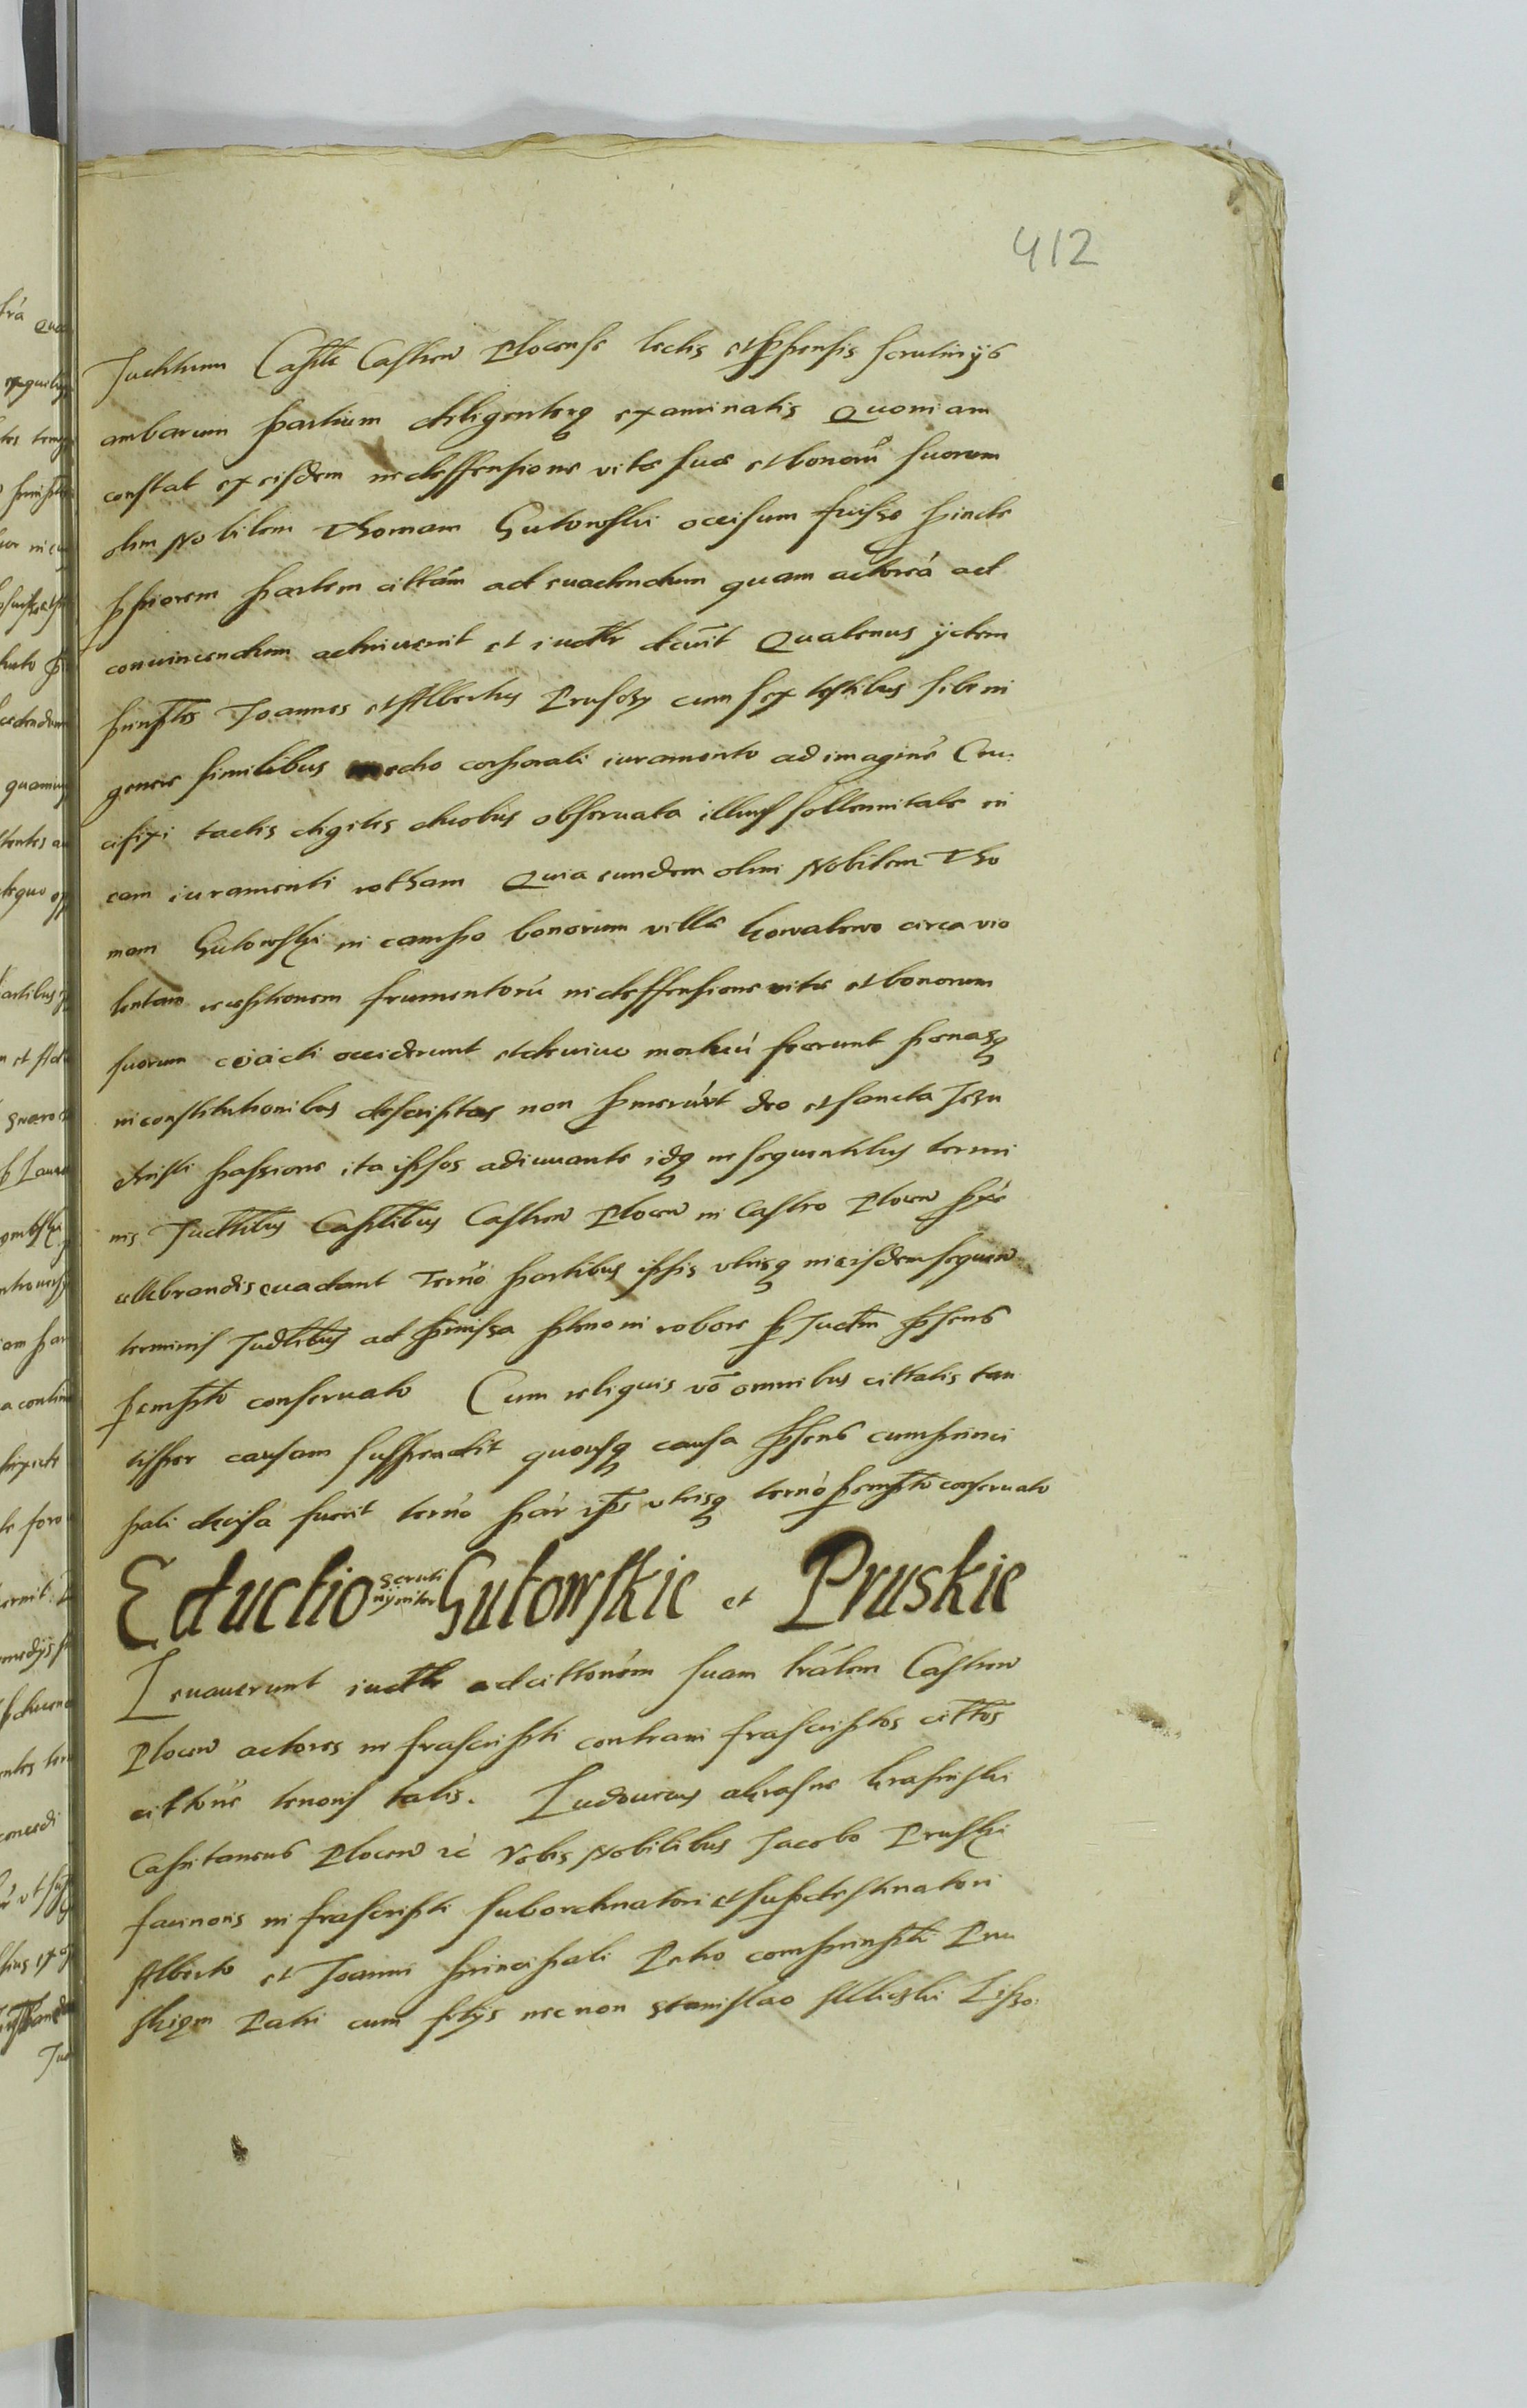 412
Judicium Captle Castren Plocense lectis et perpensis scrutinijs
ambarum partium diligenterq examinatis Quoniam
constat ex eisdem in deffensione vitae suae et bonorū suorum
olim Nobilem Thomam Gutowski occisum fuisse proinde
ppriorem partem cittám ad euadendum quam actoreá ad
conuincendum admisserit et judtr decrūit Quatenus ijdem
principles Joannes et Albertus Prussczy cum sex testibus sibi in
genere similibus medio corporali iuramento ad imaginé Cru
cifixi tactis digitis duobus obseruata illius sollennitate in
eam iuramenti rotham Quia eundem olim Nobilem Tho
mam Gutowski in campo bonorum villae Kowalewo circa vio
lentam receptionem frumentorú in deffensione vitae et bonorum
suorum coácti occiderunt et de viuo mortuú fecerunt poenasq
in constitutionibus descriptas non pmerúnt deo et sancta Jezu
christi passione ita ipsos adiuuante idq in sequentibus termi
nis Judtlibus Captlibus Castren Plocen in Castro Plocen pxe
cellebrandis euadant Terno partibus ipsis vtrisq in eisdem sequen
terminis Judtlibus ad pmissa pleno in robore p Judm pséns
pempto conseruato Cum reliquis vō omnibus cittatis tan
tisper causam suspendit quousq causa pséns cum princi
pali decisa fuerit terno pár ips vtrisq terno pempto conseruato
Eductio scruti
nij inter Gutowskie et Pruskie
Leuauerunt judtr ad cittonem suam lrálem Castren
Plocen actores infrascripti contra infrascriptos cittos
cittone tenoris talis. Ludouicus a Krasne Krasinski
Capitaneus Plocen rć Vobis Nobilibus Jacobo Pruski
facinoris infrascripti subordinatori et supdestinatori
Alberto et Joanni principali Petro comprincipli Pru
skiem Patri cum filijs nec non Stanislao